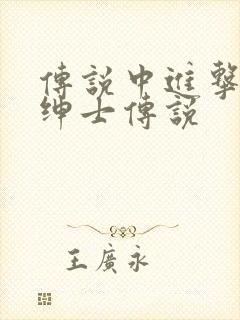 傳說中進擊
紳士傳說
王廣永